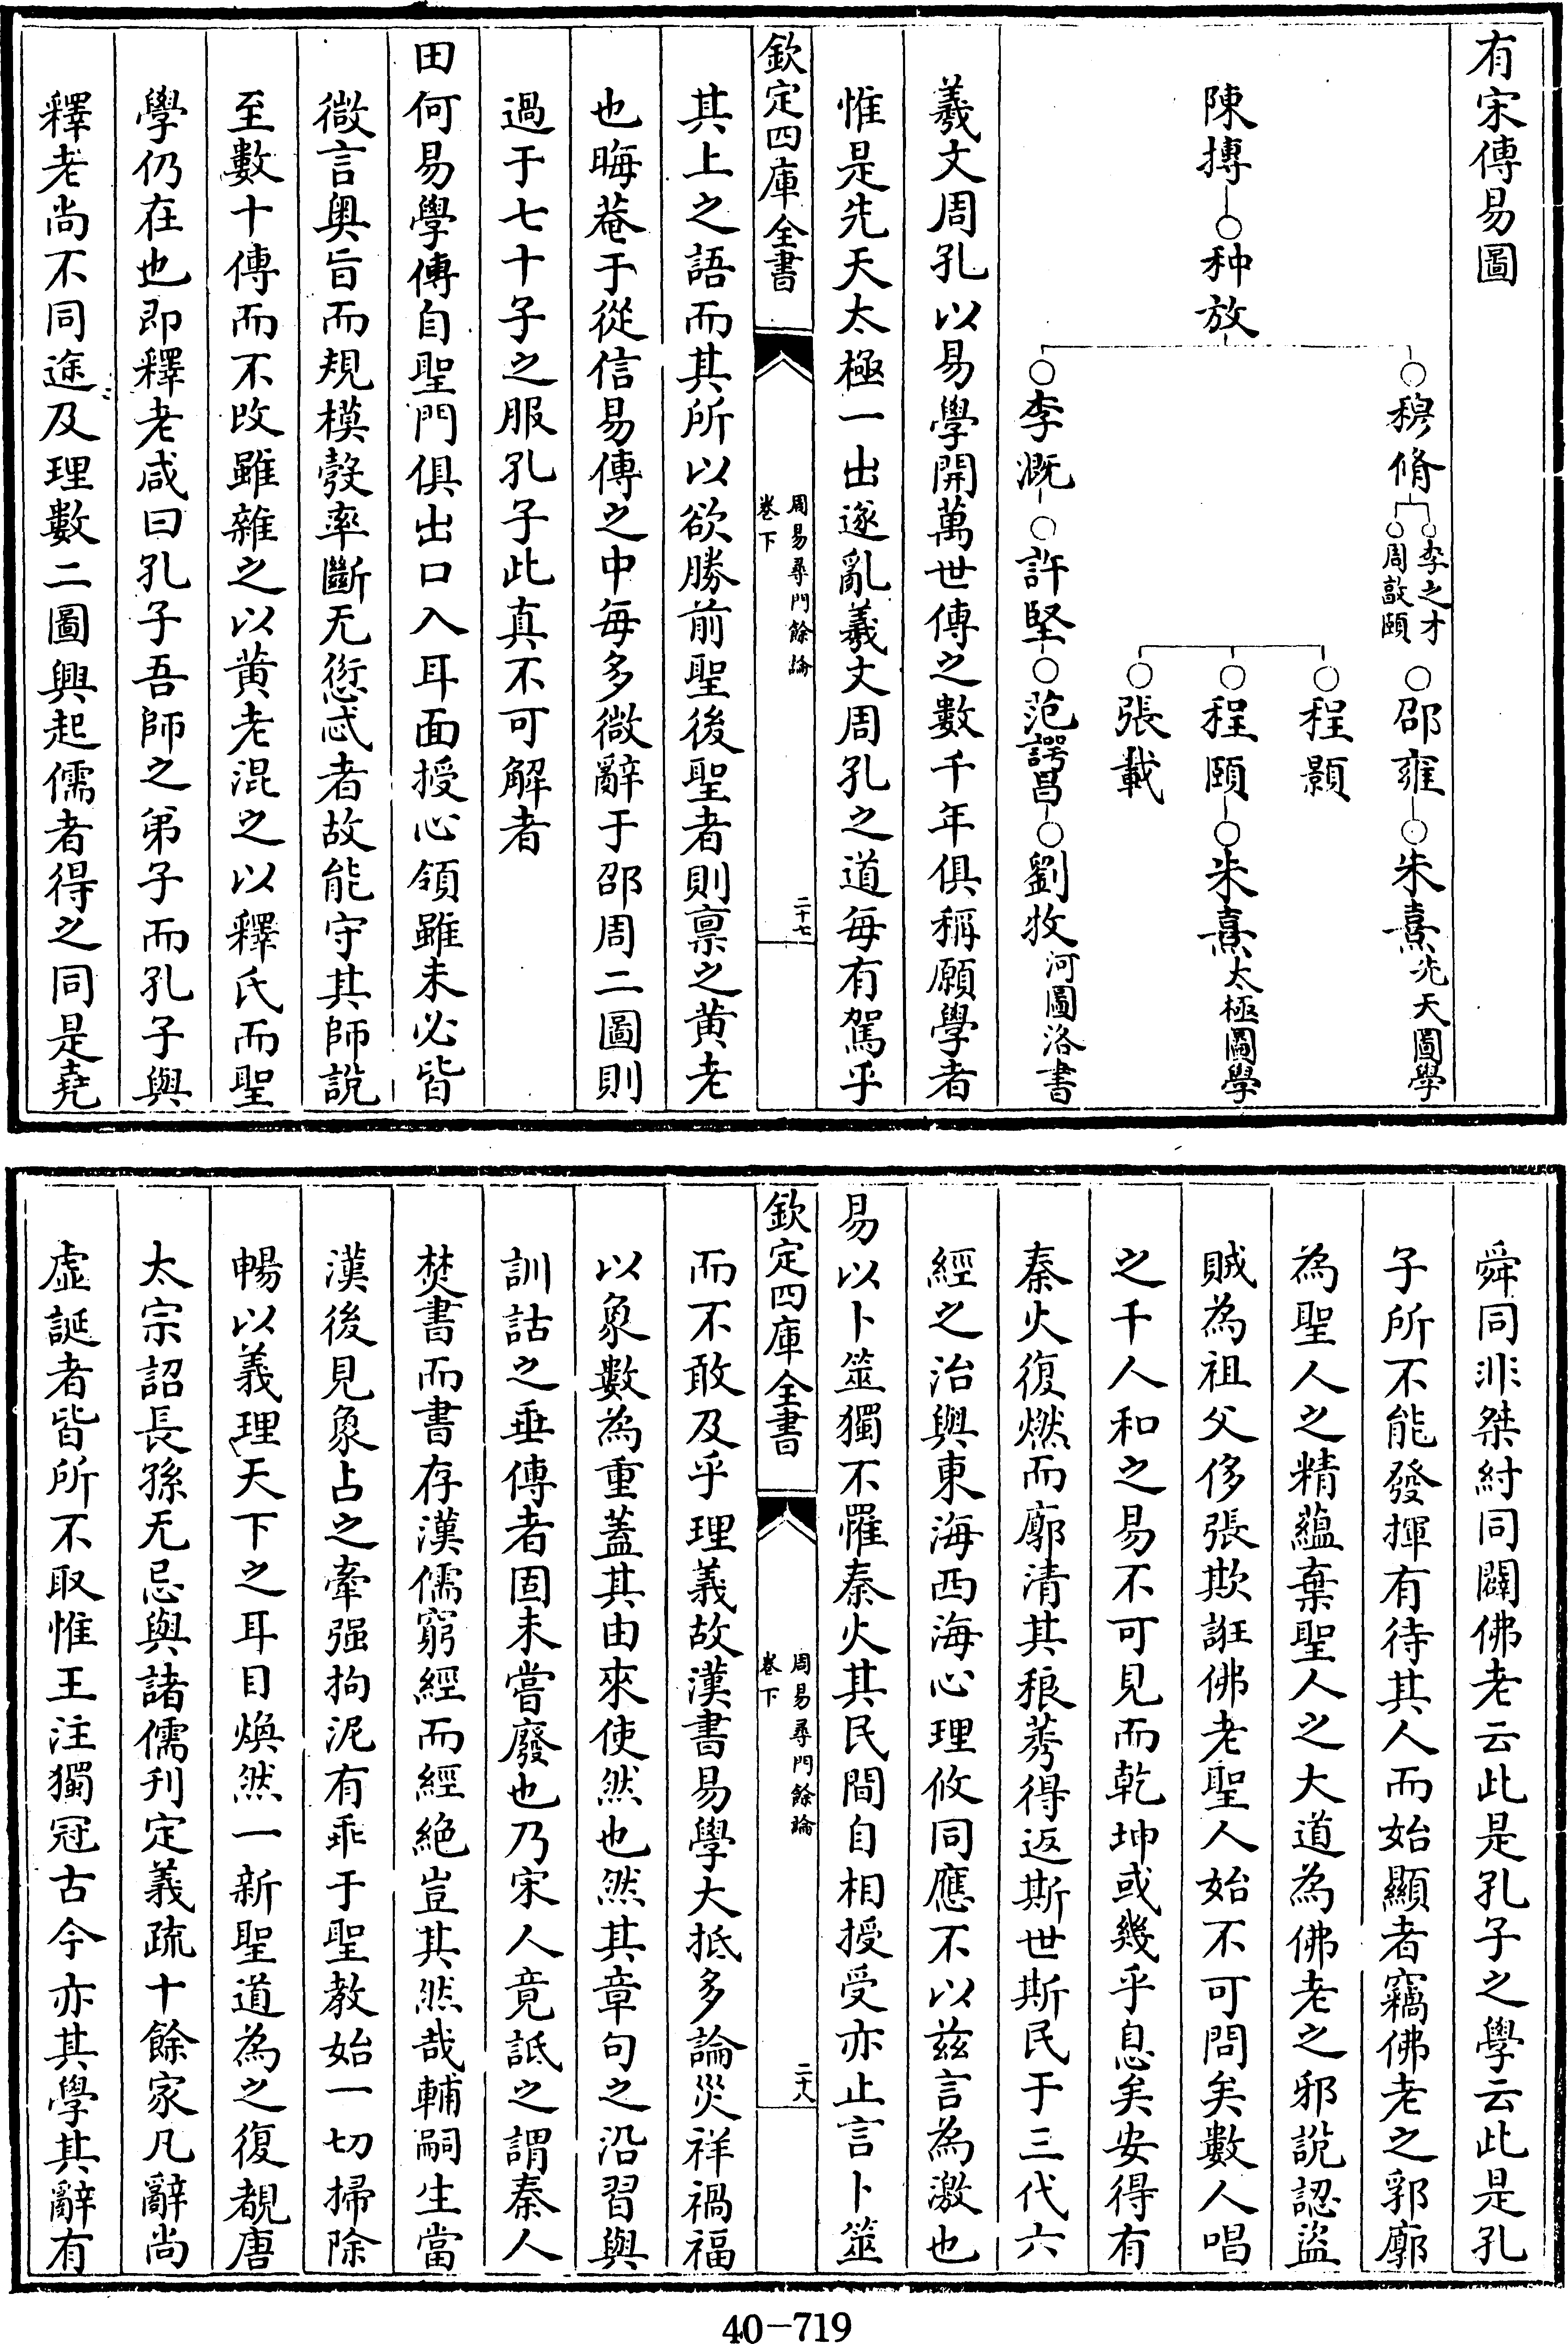 有宋傳易圖
陳摶
种放
穆脩
李之才
周敦頤
邵雍
朱熹先天圖學
程顥
程頤
朱熹太極圖學
張載
李溉
許堅
范諤昌
劉牧河圖洛書
羲文周孔以易學開萬世傳之數千年俱稱願學者
惟是先天太極一出遂亂羲文周孔之道每有駕乎
欽定四庫全書
周易尋門餘論
卷下
二十七
其上之語而其所以欲勝前聖後聖者則禀之黄老
也晦菴于從信易傳之中每多微辭于邵周二圖則
過于七十子之服孔子此真不可解者
田何易學傳自聖門俱出口入耳面授心領雖未必皆
微言奥旨而規模彀率斷无愆忒者故能守其師說
至數十傳而不改雖雜之以黄老混之以釋氏而聖
學仍在也即釋老咸曰孔子吾師之弟子而孔子與
釋老尚不同途及理數二圖興起儒者得之同是堯
舜同非桀紂同闢佛老云此是孔子之學云此是孔
子所不能發揮有待其人而始顯者竊佛老之郛廓
為聖人之精蘊棄聖人之大道為佛老之邪說認盜
賊為祖父侈張欺誑佛老聖人始不可問矣數人唱
之千人和之易不可見而乾坤或幾乎息矣安得有
秦火復燃而廓清其稂莠得返斯世斯民于三代六
經之治與東海西海心理攸同應不以兹言為激也
易以卜筮獨不罹秦火其民間自相授受亦止言卜筮
欽定四庫全書
周易尋門餘論
卷下
二十八
而不敢及乎理義故漢書易學大抵多論災祥禍福
以象數為重蓋其由來使然也然其章句之沿習與
訓詁之垂傳者固未嘗廢也乃宋人竟詆之謂秦人
焚書而書存漢儒窮經而經絶豈其然哉輔嗣生當
漢後見象占之牽强拘泥有乖于聖教始一切掃除
暢以義理天下之耳目煥然一新聖道為之復覩唐
太宗詔長孫无忌與諸儒刋定義疏十餘家凡辭尚
虛誕者皆所不取惟王注獨冠古今亦其學其辭有
40-719